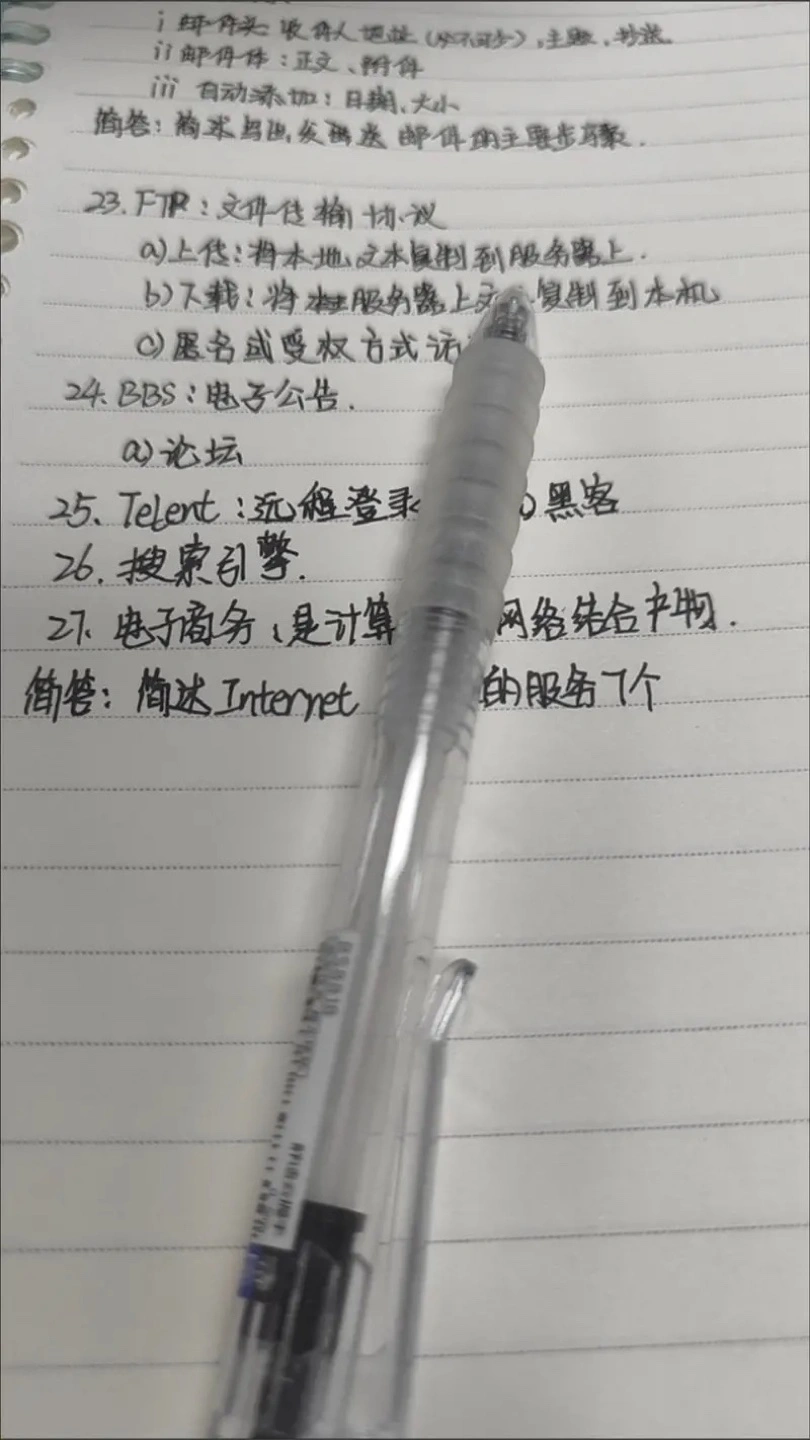 i 邮件头:收件人地址(必不可少),主题,抄送
ii 邮件体:正文、附件
iii 自动添加:日期、大小
简答:简述 发送 邮件的主要步骤.
23. FTP:文件传输协议
a)上传:将本地文本复制到服务器上.
b)下载:将 服务器上文 复制到本机
c)匿名或受权方式访
24. BBS:电子公告.
a)论坛
25、Telent:远程登录 黑客
26. 搜索引擎.
27. 电子商务、是计算 网络结合产物.
简答:简述Internet 的服务7个